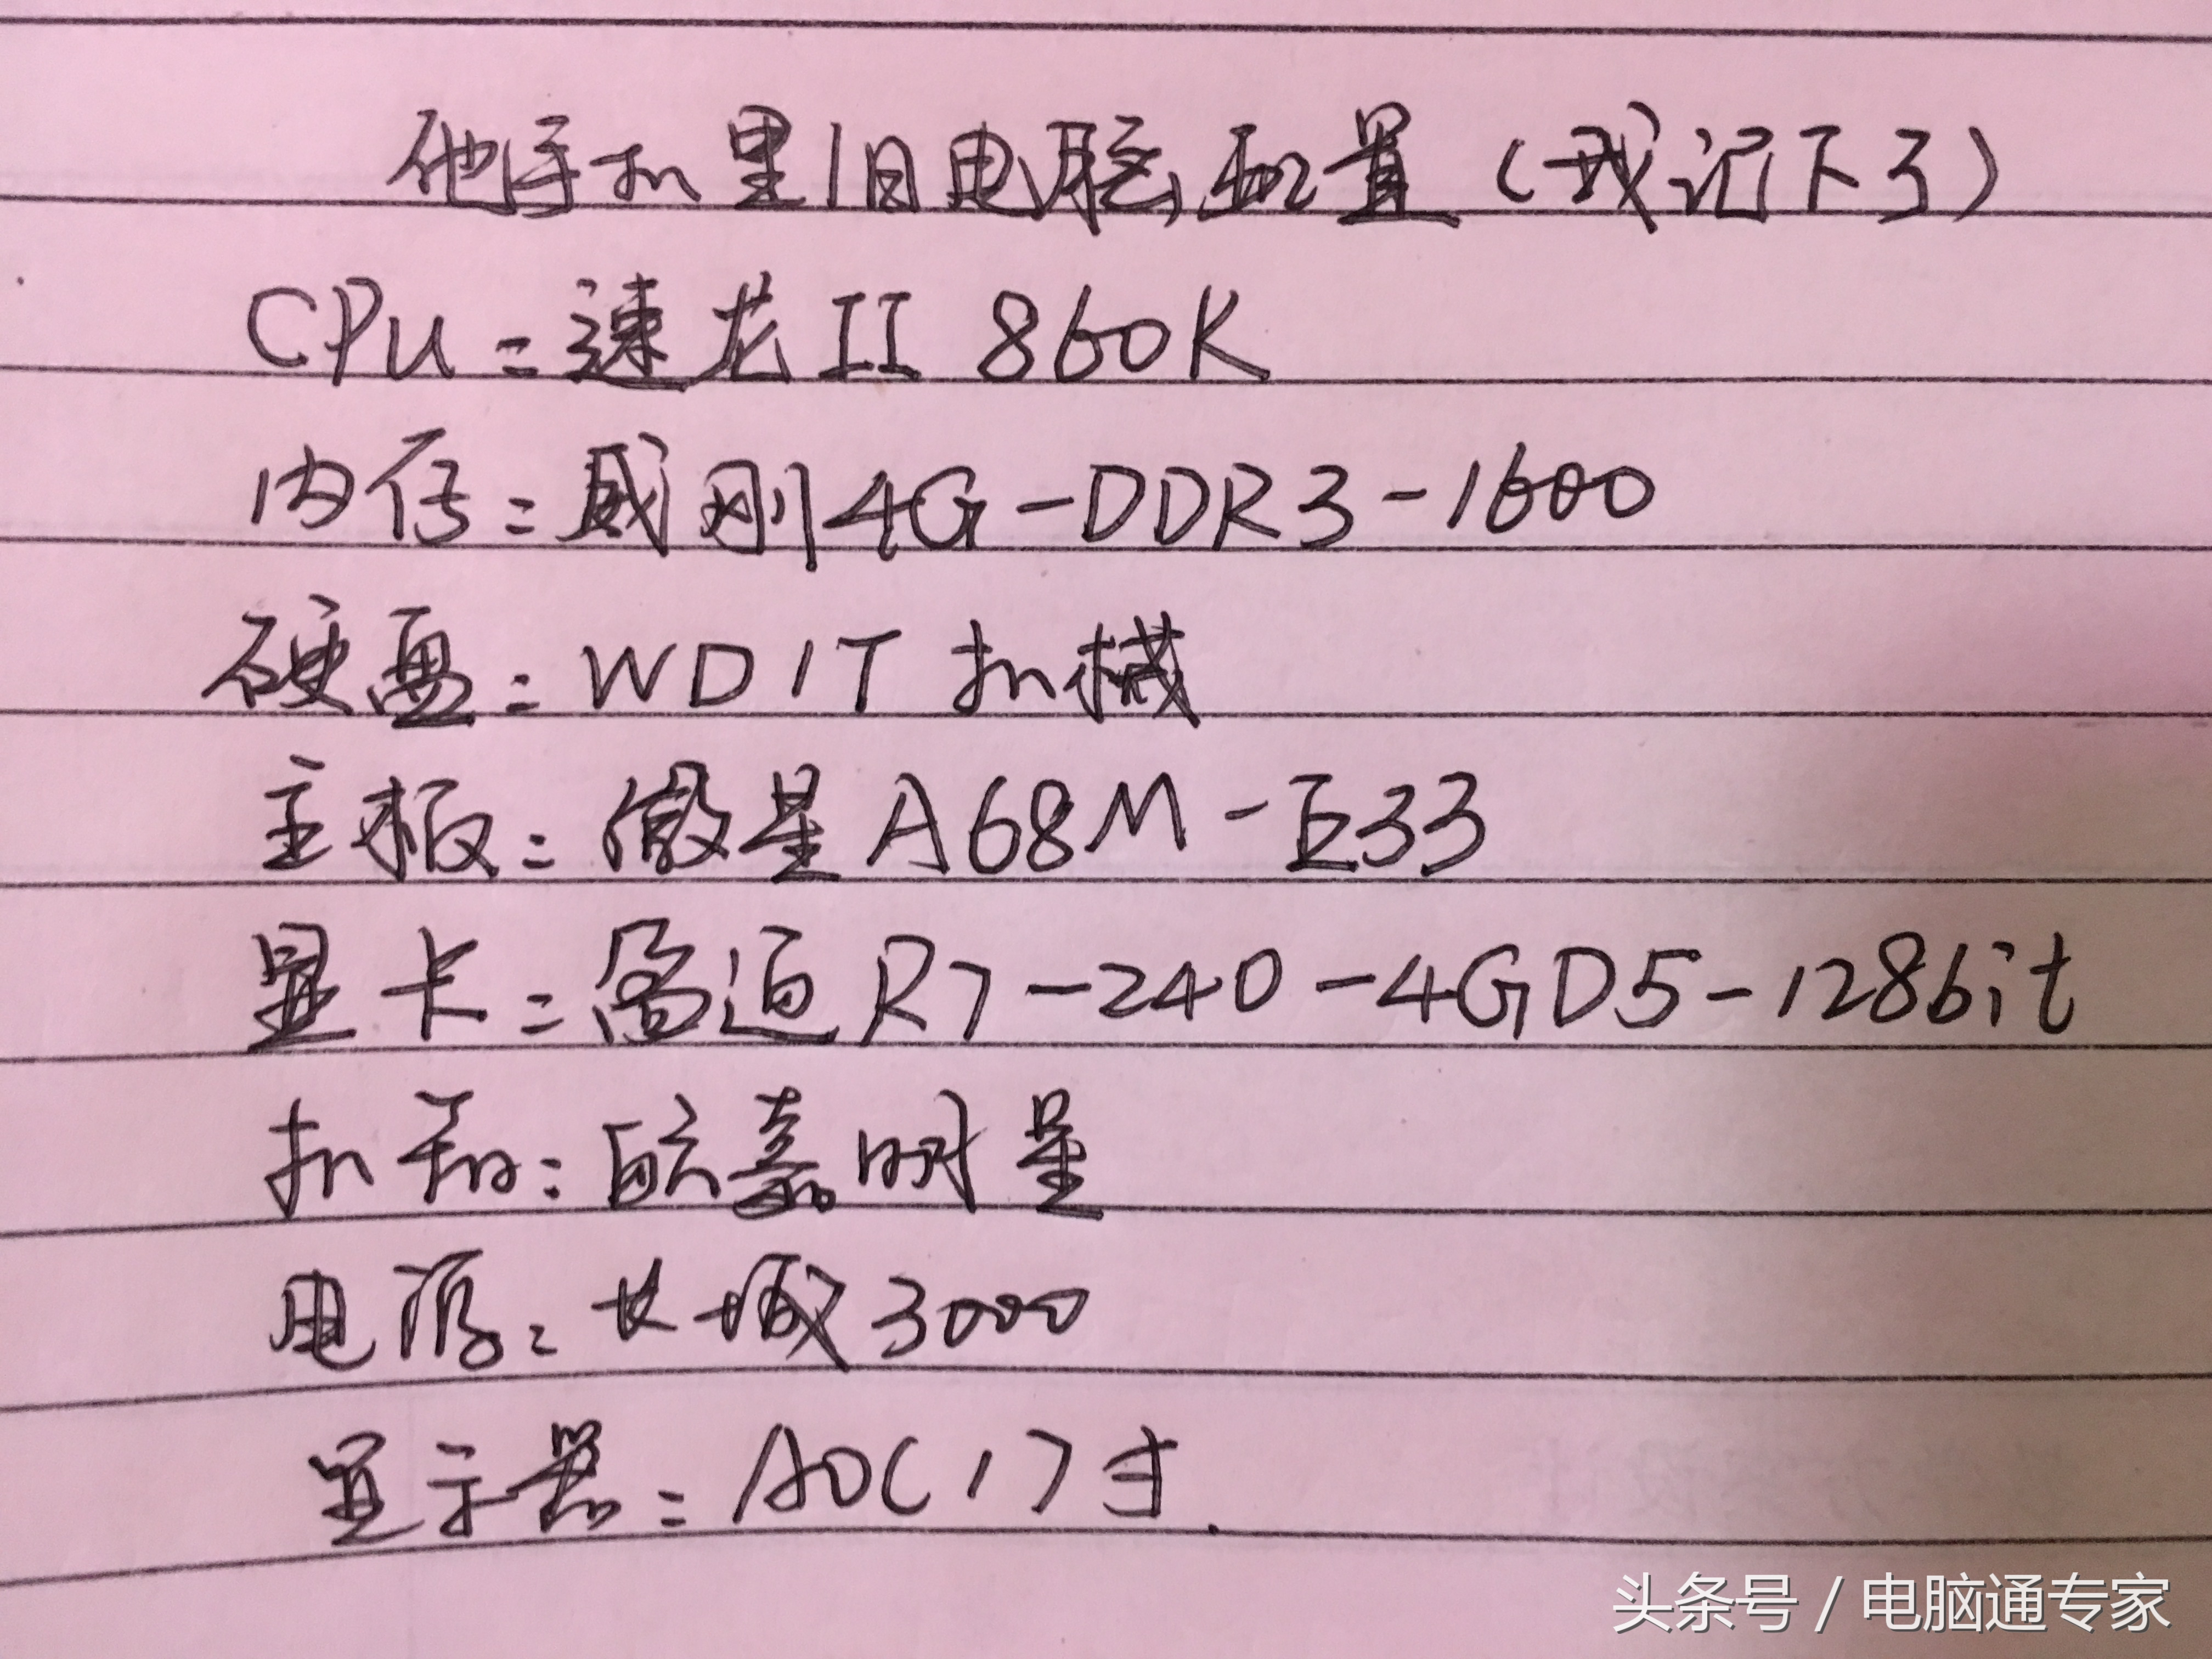 他手机里旧电脑配置（我记下了）
CPU：速龙II 860K
内存：威刚4G-DDR3-1600
硬盘：WD1T 机械
主板：微星A68M-E33
显卡：盈通R7-240-4GD5-128bit
机箱：航嘉明星
电源：长城3000
显示器：AOC17寸.
头条号 / 电脑通专家